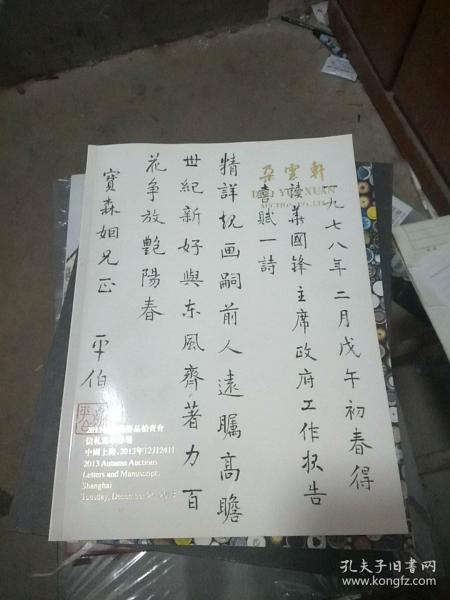 朵雲軒
一九七八年二月戊午初春得
讀華國鋒主席政府工作报告
喜賦一詩
精詳規画嗣前人遠矚高瞻
世紀新好與东風齊著力百
花争放艷陽春
寶森姻兄正 平伯
信札
中國上海,2013年12月24日
2013 Autumn Auctions
Letters and Manuscript
Shanghai
Tuesday, December
孔夫子旧书网
www.kongfz.com